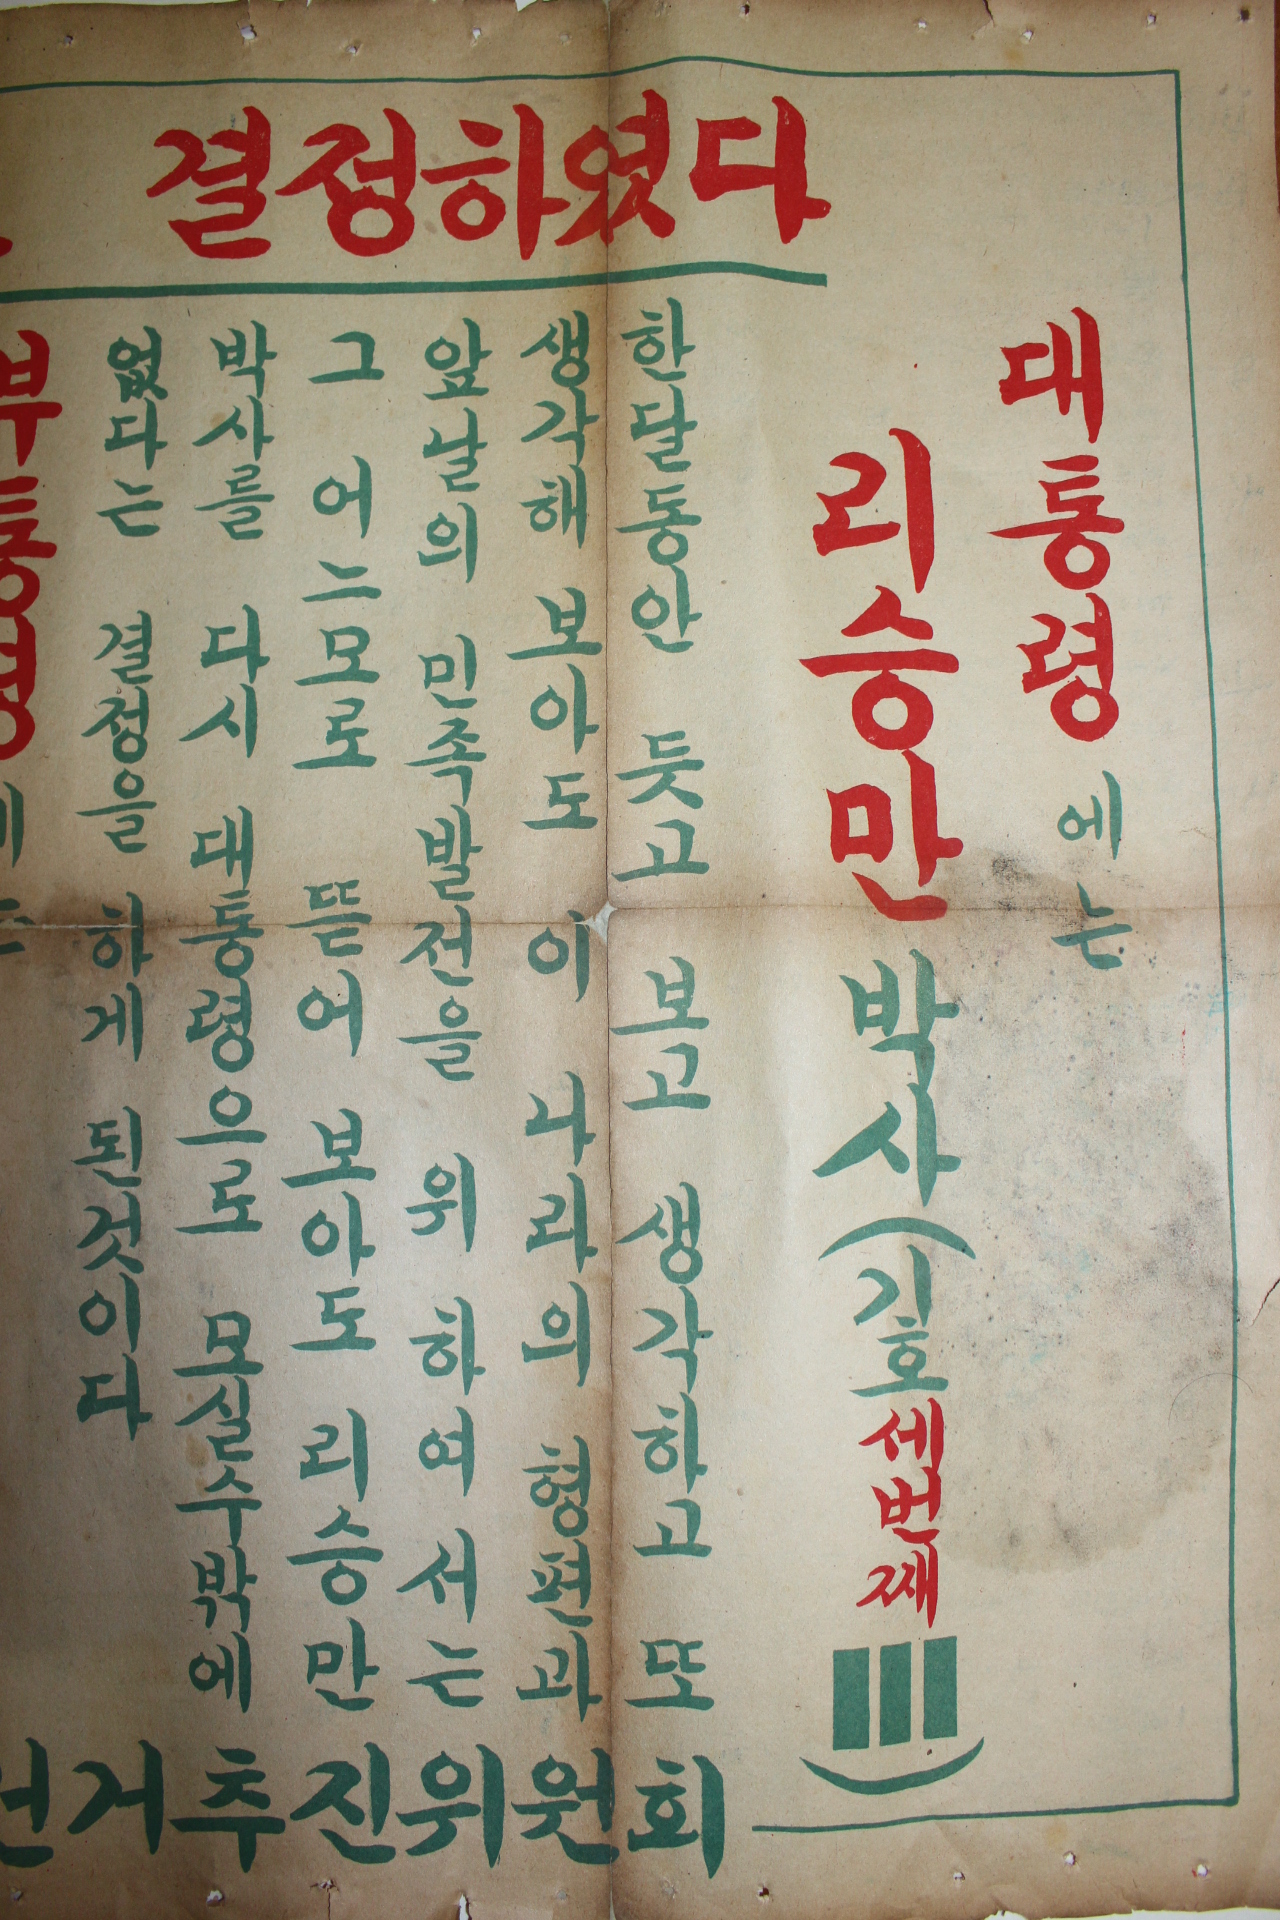 결정하였다
대통령에는
리승만 박사(기호세번째 III)
한달동안 듯고 보고 생각하고 또
생각해 보아도 이 나라의 형편과
앞날의 민족발전을 위하여서는
그 어느모로 뜯어 보아도 리승만
박사를 다시 대통령으로 모실수밖에
없다는 결정을 하게 된것이다
부통령
거추진위원회